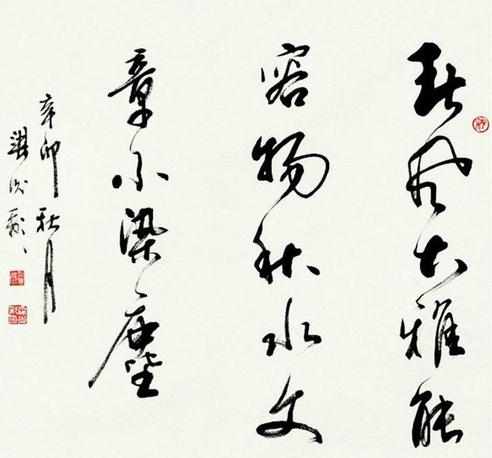 春風大雅能
容物秋水文
章不染塵
辛卯秋月